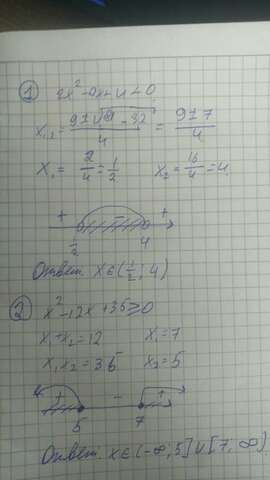 ① 2x²-9x+4<0
x₁,₂ = 9±√81-32 / 4 = 9±7 / 4
x₁ = 2/4 = 1/2 x₂ = 16/4 = 4
+ - +
1/2 4
Ответ: x∈(1/2; 4)
② x²-12x+35≥0
x₁+x₂=12 x₁=7
x₁x₂=35 x₂=5
+ - +
5 7
Ответ: x∈(-∞; 5]∪[7; ∞)